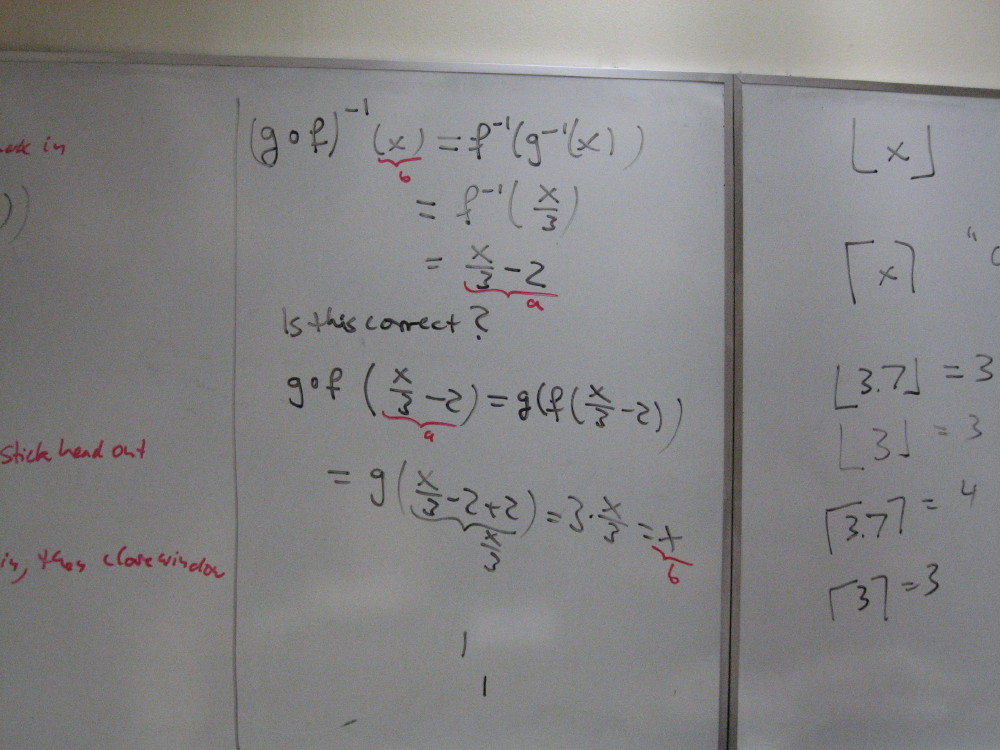 ))
Stick head out
in, then close window
(g∘f)⁻¹(x) = f⁻¹(g⁻¹(x))
b
= f⁻¹(x/3)
= x/3 - 2
a
Is this correct?
g∘f (x/3 - 2) = g(f(x/3 - 2))
a
= g(x/3 - 2 + 2) = 3 · x/3 = x
x/3
b
⌊x⌋
⌈x⌉ "
⌊3.7⌋ = 3
⌊3⌋ = 3
⌈3.7⌉ = 4
⌈3⌉ = 3